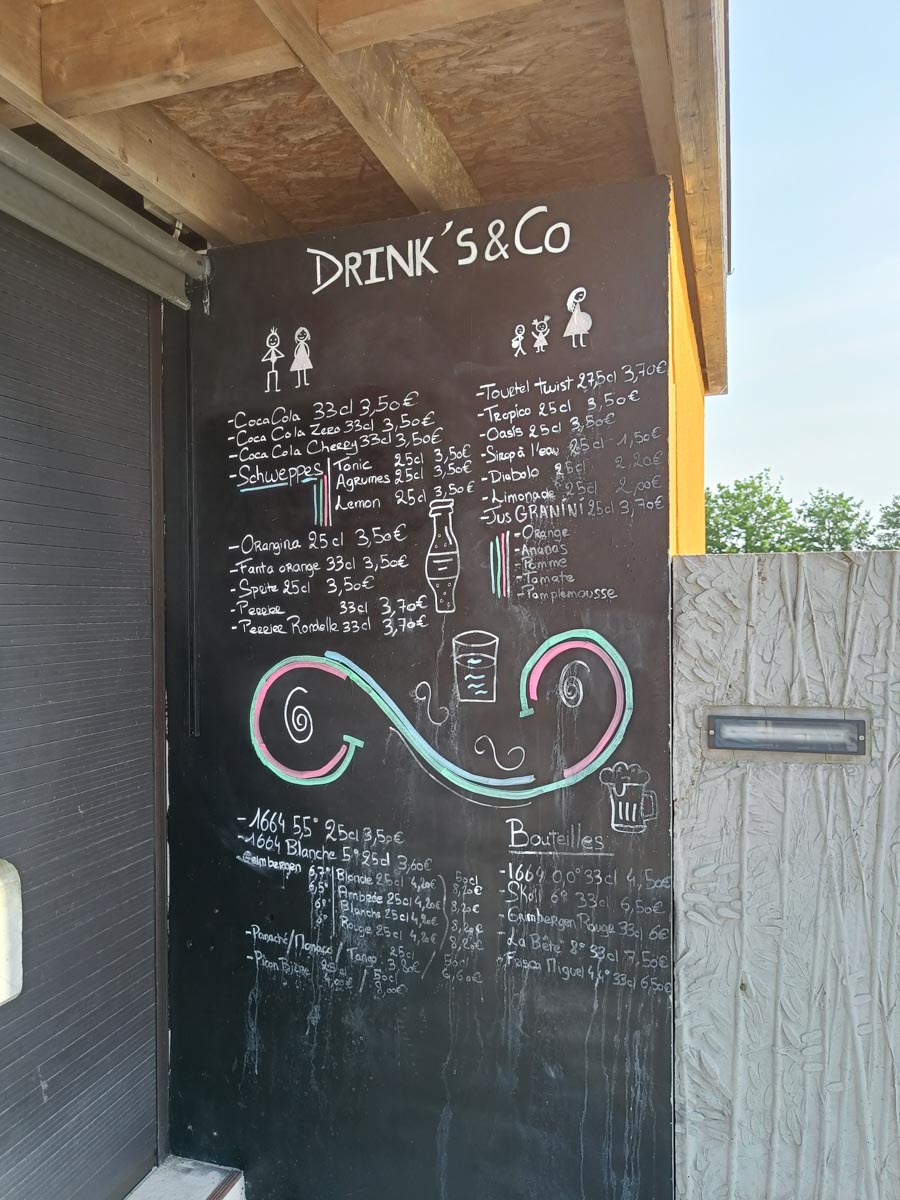 DRINK'S&Co
-CocaCola 33cl 3,50€
-Coca Cola Zero 33cl 3,50€
-Coca Cola Cherry 33cl 3,50€
-Schweppes Tonic 25cl 3,50€
Agrumes 25cl 3,50€
Lemon 25cl 3,50€
-Orangina 25cl 3,50€
-Fanta orange 33cl 3,50€
-Sprite 25cl 3,50€
-Perrier 33cl 3,70€
-Perrier Rondelle 33cl 3,70€
-Tourtel twist 27,5cl 3,70€
-Tropico 25cl 3,50€
-Oasis 25cl 3,50€
-Sirop à l'eau 25cl 1,50€
-Diabolo 25cl 2,20€
-Limonade 25cl 2,00€
-Jus GRANINI 25cl 3,70€
-Orange
-Ananas
-Pomme
-Tomate
-Pamplemousse
-1664 5,5° 25cl 3,50€
-1664 Blanche 5° 25cl 3,60€
-Grimbergen 6,7° Blonde 25cl 4,20€ 50cl 8,20€
6,5° Ambrée 25cl 4,20€ 8,20€
6° Blanche 25cl 4,20€ 8,20€
6° Rouge 25cl 4,20€ 8,20€
-Panaché/Monaco/Tango 25cl 3,80€ / 50cl 6,60€
-Picon Bière 25cl 4,00€ / 50cl 8,00€
Bouteilles
-1664 0,0° 33cl 4,50€
-Skoll 6° 33cl 6,50€
-Grimbergen Rouge 33cl 6€
-La Bête 8° 33cl 7,50€
-Miguel 4,4° 33cl 6,50€